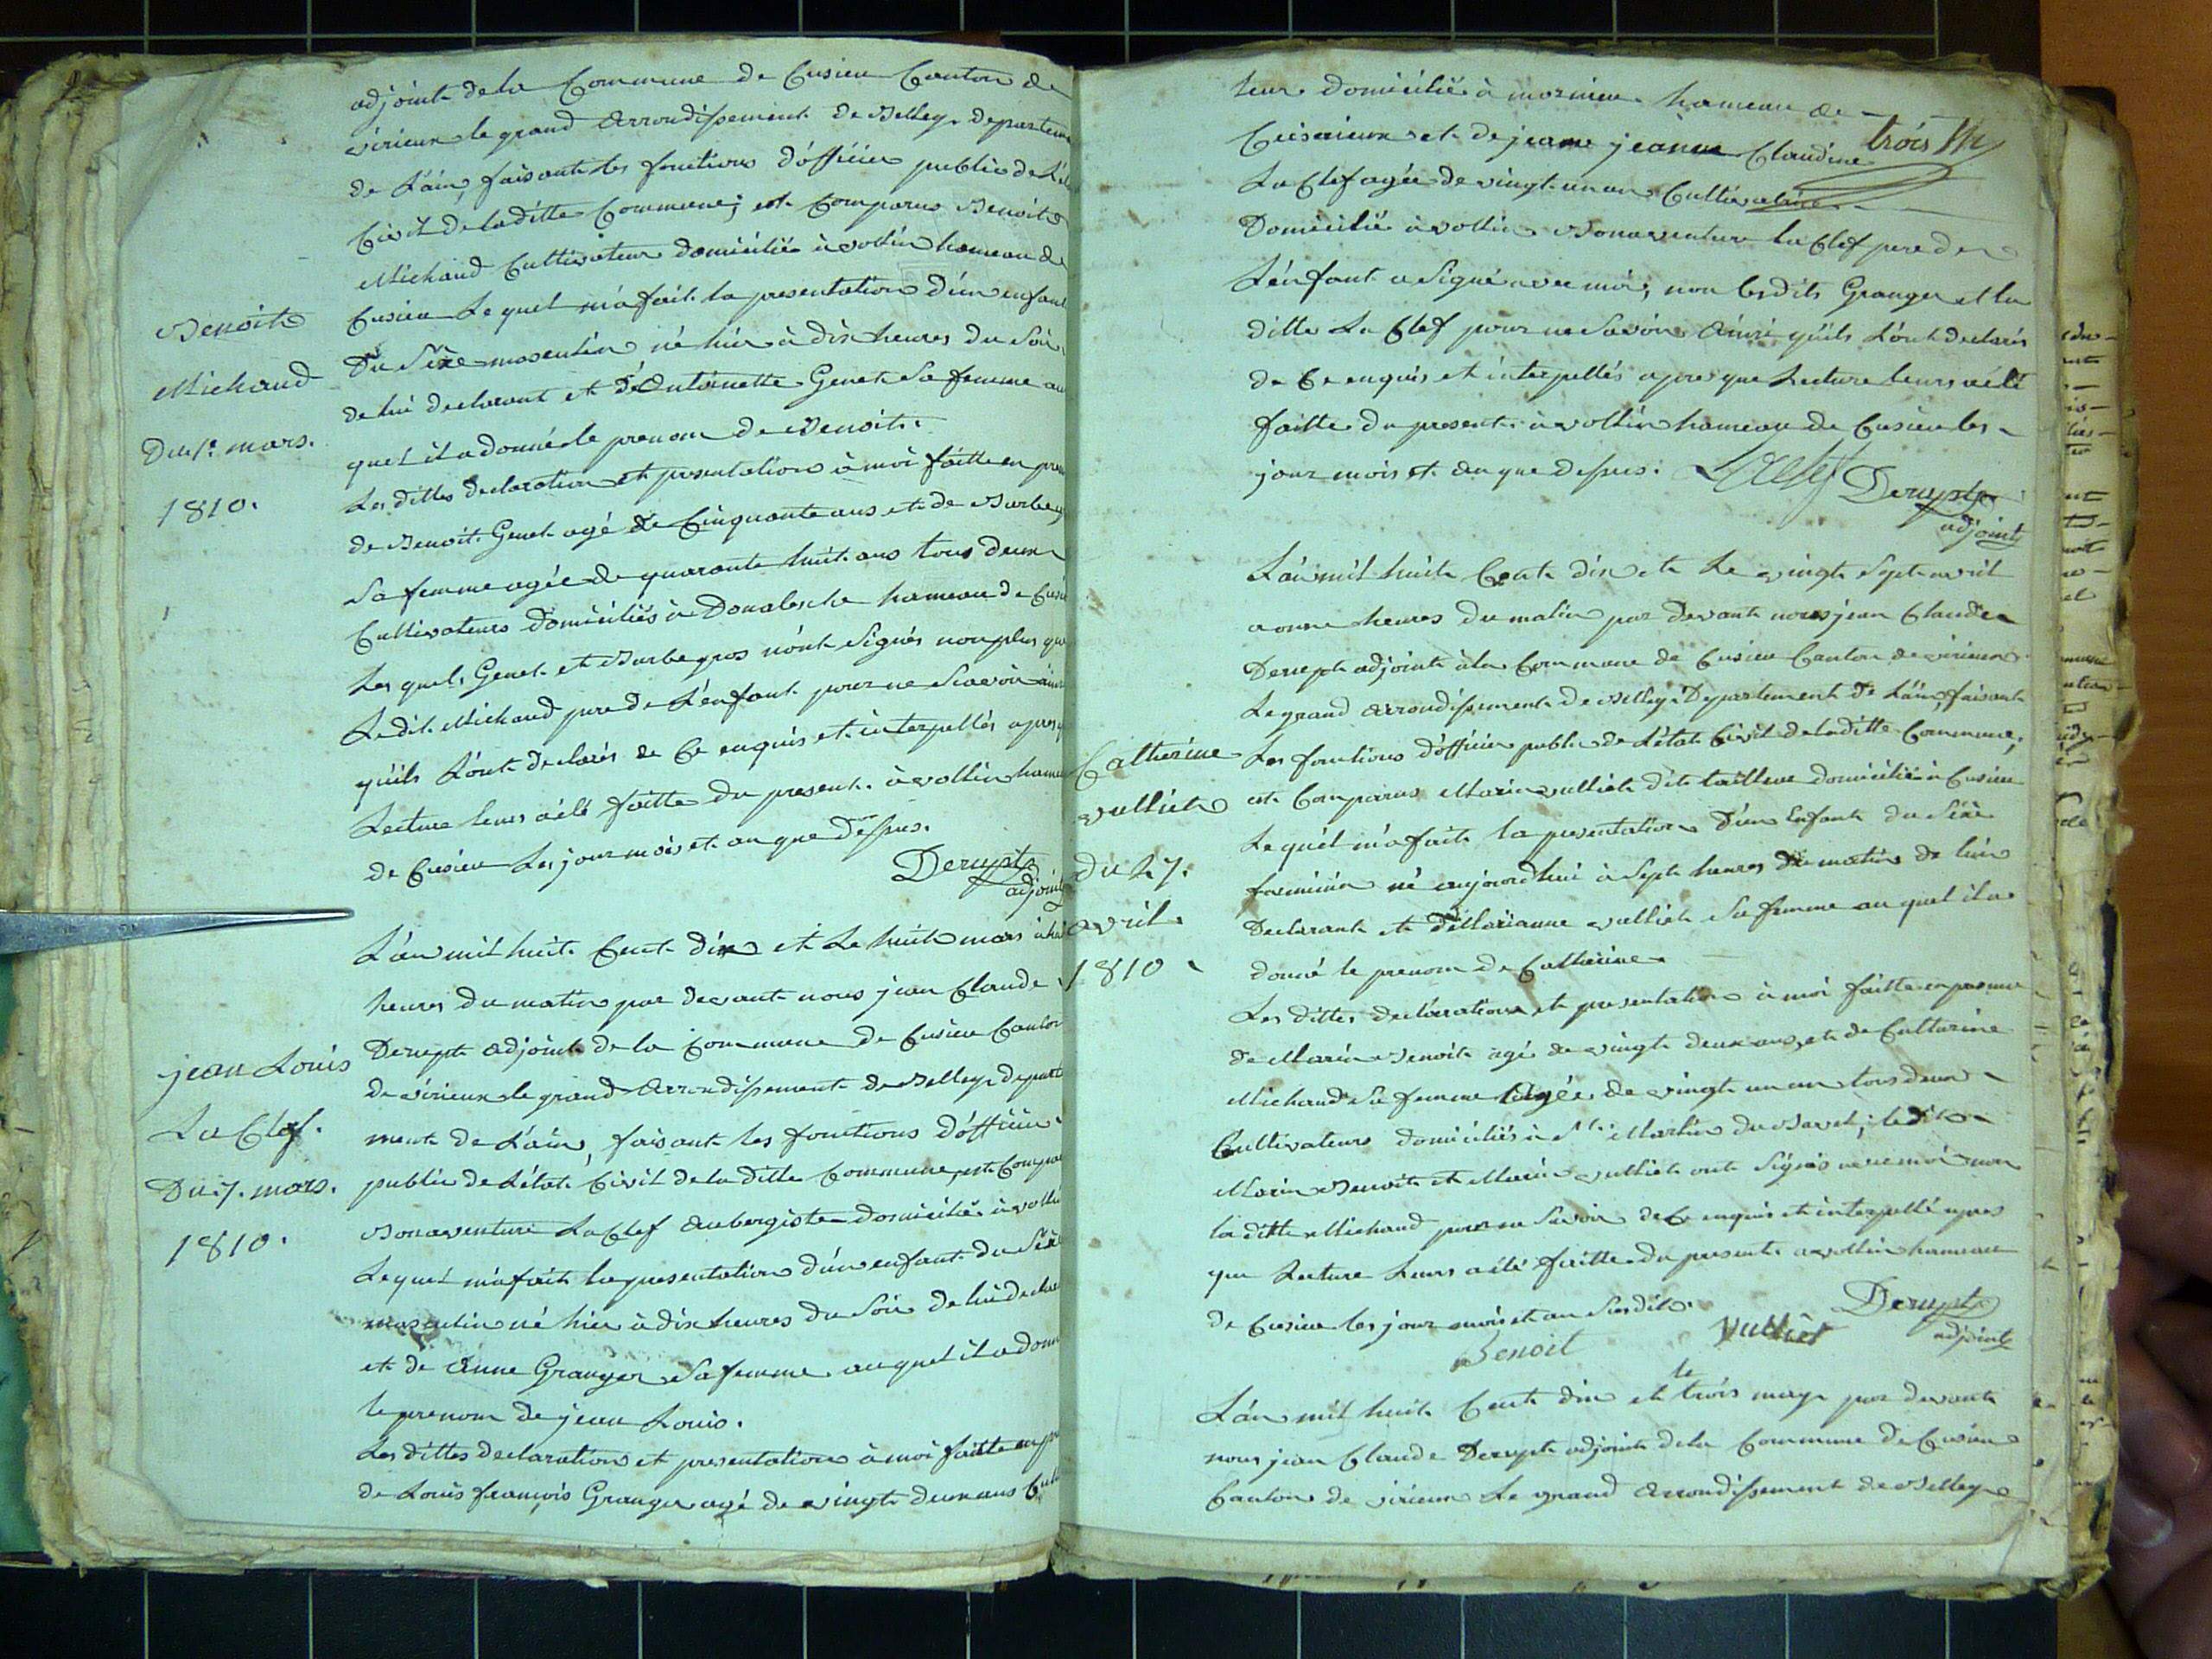 adjoint de la Commune de Cusieu Canton de
virieux le grand arrondissement de Belley departeme
de L'ain, faisant les fonctions d'officier public de L'ét
Civil de laditte Commune; est Comparus Benoit
Michaud Cultivateur domicilié à vollin hameau de
Cusieu Le quel m'a fait la presentation d'un enfant
Du Sexe masculin, né hier à dix heures du Soir,
de lui declarant et d'Antoinette Genet Sa femme au
quel il a donné le prenom de Benoit.
Les dittes declaration et presentation à moi faitte en pres
de Benoit Genet agé de Cinquante ans et de Barbe g
Sa femme agée de quarante huit ans tous deux
Cultivateurs domiciliés à hameau de Cusi
Les quels Genet et Barbe gros n'ont Signés non plus que
Le dit Michaud pere de L'enfant pour ne Scavoir ains
qu'ils L'ont declarés de Ce enquis et interpellés apres q
Lecture leurs a été faitte du present. à vollin hame
de Cusieu Les jour mois et an que dessus.
Derupt
adjoint
Benoit
Michaud
Du 1er mars.
1810.
L'an mil huit Cent dix et Le huit mars à hui
heures du matin par devant nous jean Claude
Derupt adjoint de la Commune de Cusieu Canton
de virieux le grand arrondissement de Belley depart
ment de L'ain, faisant les fonctions d'officier
public de L'état Civil de la ditte Commune, est Compar
Bonaventure La Clef aubergiste domicilié à volli
Le quel m'a fait la presentation d'un enfant du Sexe
masculin né hier à dix heures du Soir de lui declar
et de anne Granger Sa femme au quel il a donn
le prenom de jean Louis.
Les dittes declaration et presentation à moi faitte en pr
de Louis françois Granger agé de vingt deux ans Cul
jean Louis
La Clef.
Du 7. mars.
1810.
teur domicilié à hameau de
et de jeanne Claudine trois
La Clef agée de vingt un an Cultivatrice
Domicilié à vollin Bonaventure La Clef pere de
L'enfant a Signé avec moi; non lesdits Granger et la
ditte La Clef pour ne Savoir Ainsi qu'ils L'ont declarés
de Ce enquis et interpellés apres que Lecture leurs a été
faitte du present. à vollin hameau de Cusieu les
jour mois et an que dessus. LaClef Derupt
adjoint
L'an mil huit Cent dix et Le vingt Sept avril
a onze heures du matin par devant nous jean Claude
Derupt adjoint à la Commune de Cusieu Canton de virieux
Le grand arrondissement de Belley Departement de L'ain, faisant
Les fonctions d'officier public de L'état Civil de laditte Commune,
est Comparus Marin vulliet dit tailleur domicilié à Cusieu
Le quel m'a fait la presentation d'un Enfant du Sexe
feminin né aujourdhui à Sept heures du matin de lui
Declarant et de Marianne vulliet Sa femme au quel il a
donné le prenom de Catherine.
Les dittes declaration et presentation à moi faitte en presence
de Marin Benoit agé de vingt deux ans, et de Catherine
Michaud Sa femme Agée de vingt un an tous deux
Cultivateurs domiciliés à St Martin du Bavet; ledit
Marin Benoit et Marin vulliet ont Signés avec moi non
la ditte Michaud pour ne Savoir de Ce enquis et interpellé apres
que Lecture Leurs a été faitte du present. a vollin hameau
de Cusieu les jour mois et an Susdit.
Benoit Vulliet Derupt
adjoint
Catherine
vulliet
Du 27.
avril
1810
L'an mil huit Cent dix et le trois may par devant
nous jean Claude Derupt adjoint de la Commune de Cusieu
Canton de virieux Le grand arrondissement de Belley